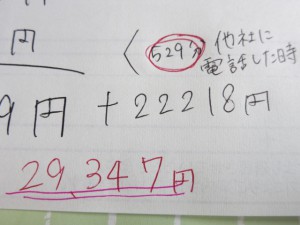 円
529分 他社に
電話した時
9円 + 22218円
29347円